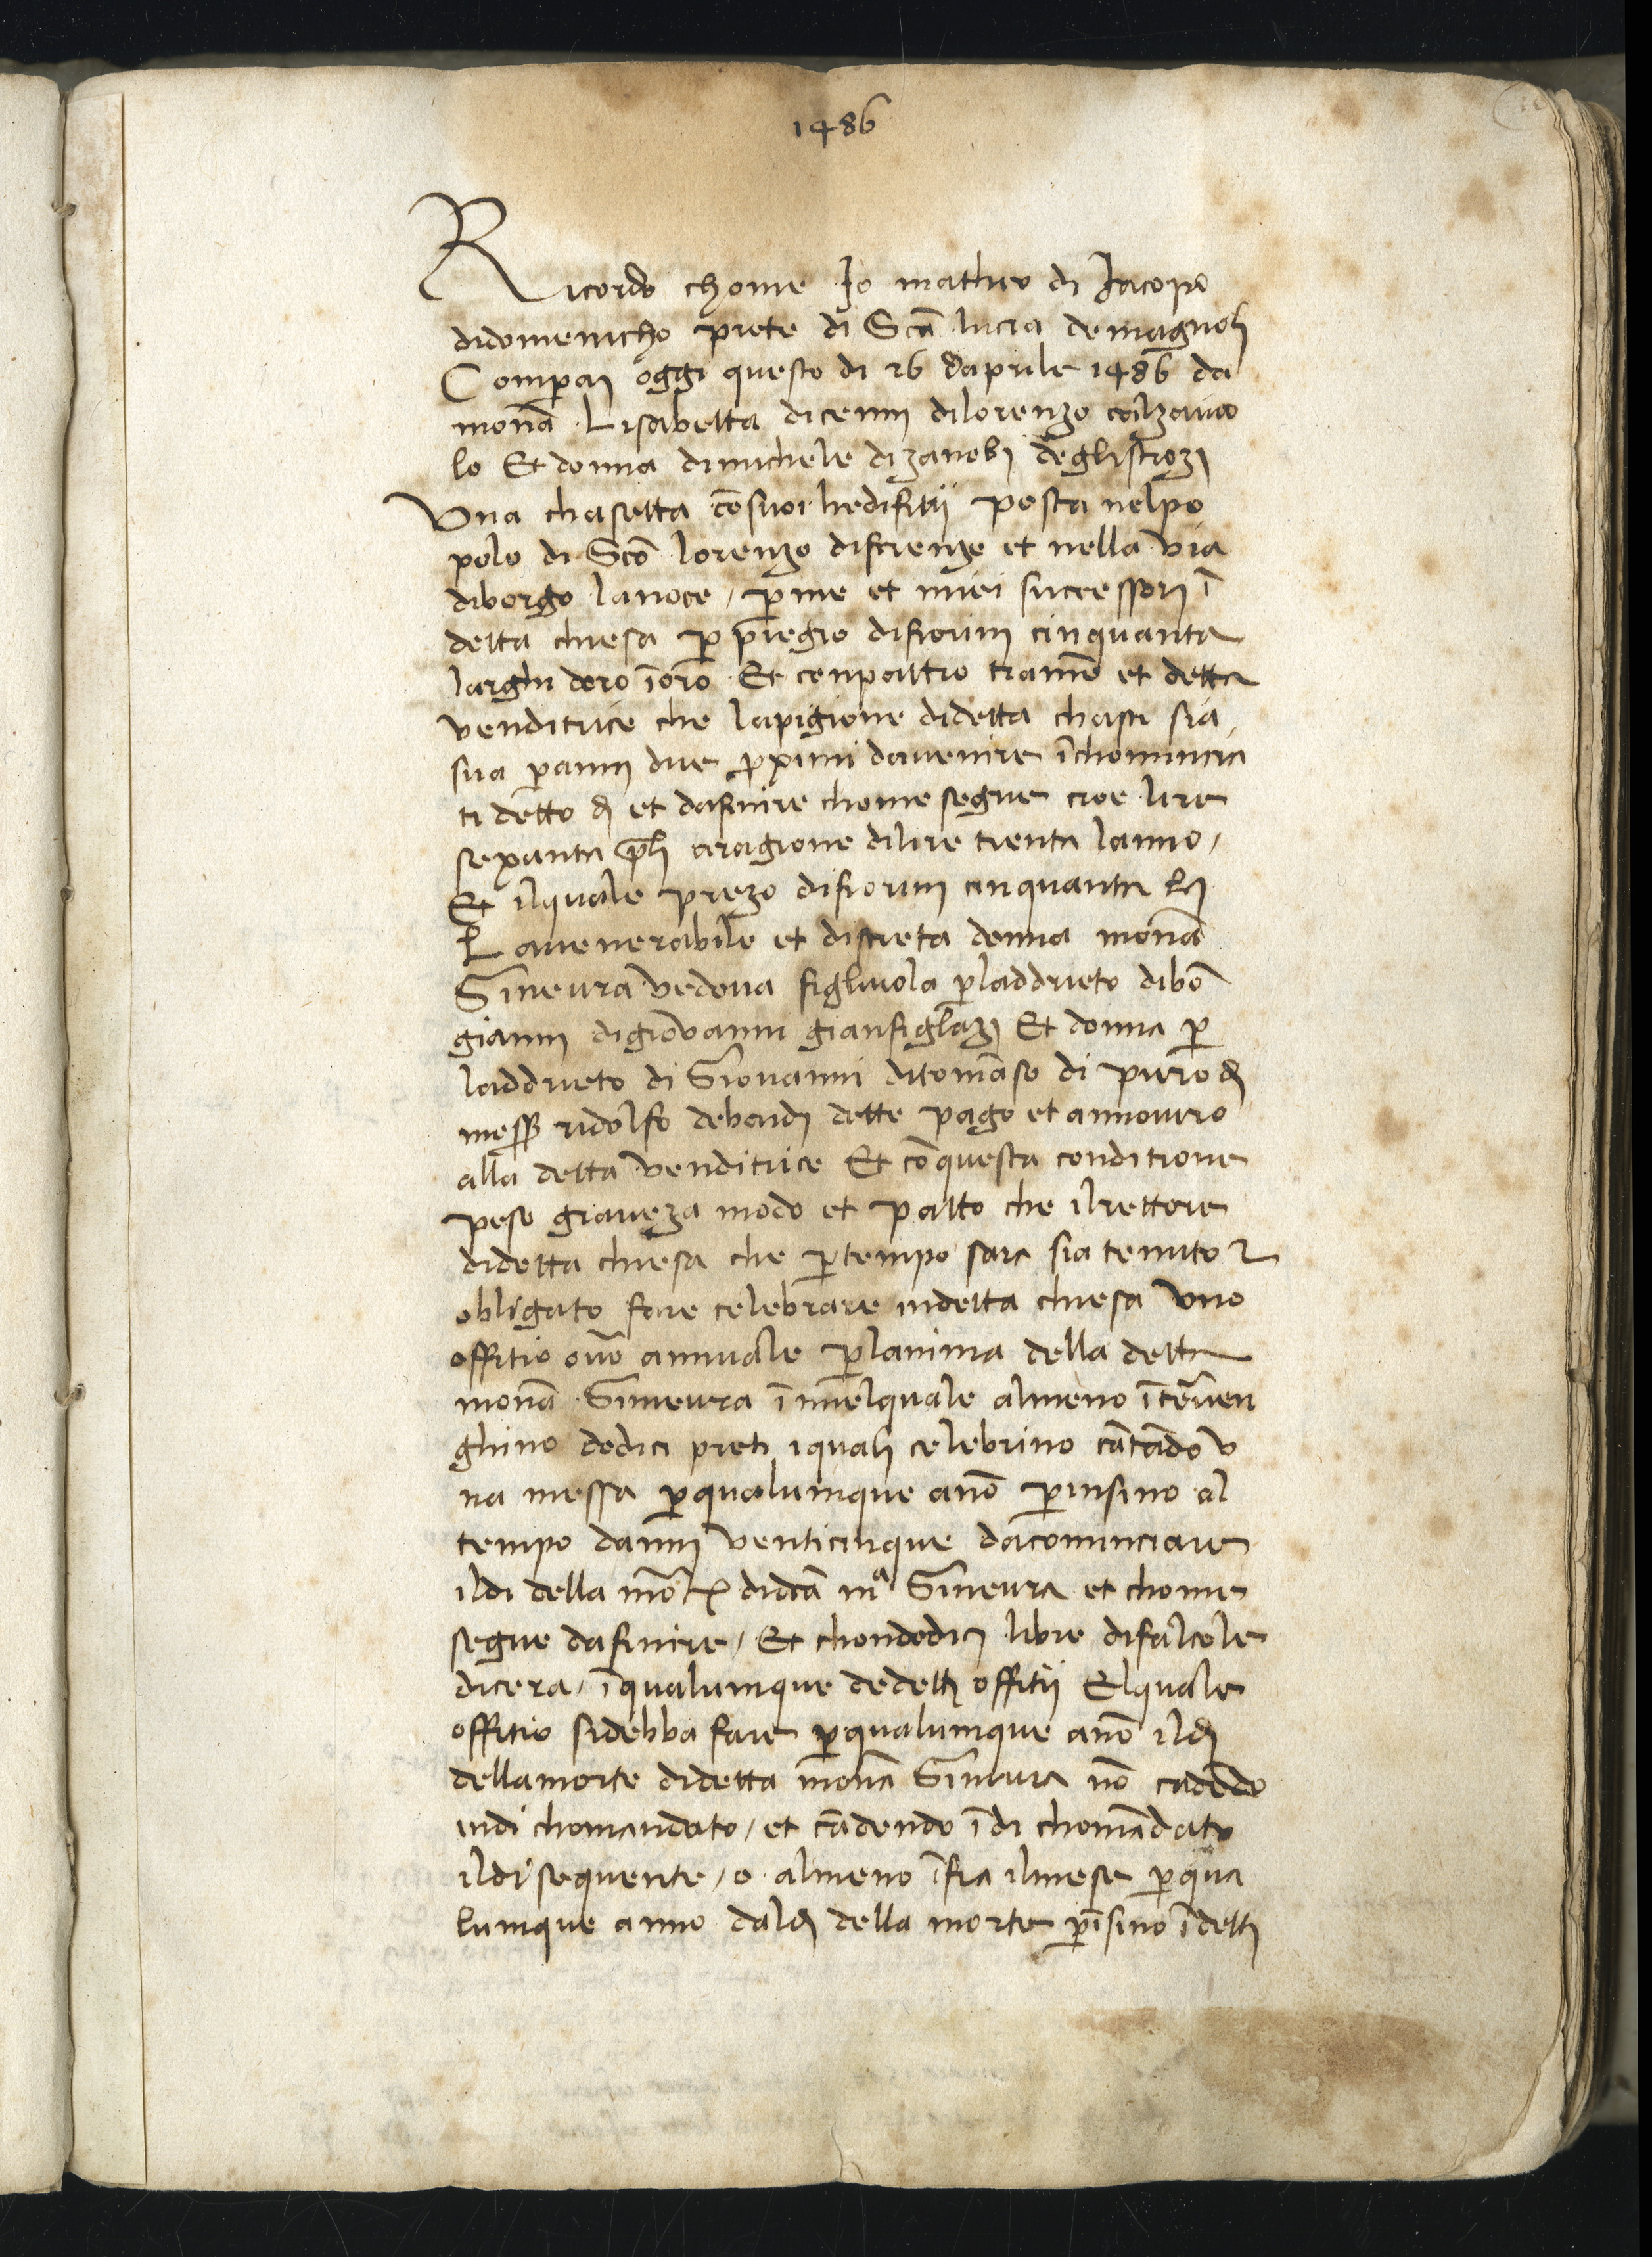 1486
Ricordo chome Jo matheo di Jacopo
didomenicho prete di Scā lucia demagnoli
Comperai oggi questo di 26 daprile 1486 da
monā Lisabetta dicenni dilorenzo calzaiuo
lo Et donna dimichele dizanobi deglistrozi
Vna chasetta cōsuoi hedifitii posta nelpo
polo di Scō lorenzo difirenze et nella via
diborgo lanoce / p̄me et miei successori ī
detta chiesa p̄ pregio difiorini cinquanta
larghi doro īoro Et conpatto tramē et detta
venditrice che lapigione didetta chasa sia
sua p̄anni due p̄ximi dauenire īchomincia
ti detto di et dafinire chome segue cioe lire
sexanta p̄li aragione dilire trenta lanno /
Et ilquale prezo difiorini cinquanta lri
Lauenerabile et discreta donna monā
Gineura vedoua figliuola p̄laddrieto dibō
gianni digiovanni gianfigliazi Et donna p̄
laddrieto di Giovanni ditomāso di piero di
mess̄ ridolfo debardi dette pago et annouero
alla detta venditrice Et cōquesta conditione
peso graueza modo et patto che ilrettore
didetta chiesa che p̄tempo sara sia tenuto &
obligato fare celebrare indetta chiesa vno
offitio ouō annuale p̄lanima della detta
monā Gineura ī nnelquale almeno īteruen
ghino dodici preti iquali celebrino cātādo v
na messa p̄qualumque anō p̄insino al
tempo danni venticinque dacominciare
ildi della mo͞r didcā mᵃ Gineura et chome
segue dafinire / Et chondodici libre difalcole
dicera / īqualumque dedetti offitii Elquale
offitio sidebba fare p̄qualumque anō ildi
dellamorte didetta monā Gineura nō cadēdo
indi chomandato / et cadendo īdi chomādato
ildi sequente / o almeno īfra ilmese p̄qua
lumque anno daldi della morte p̄īsino īdetti